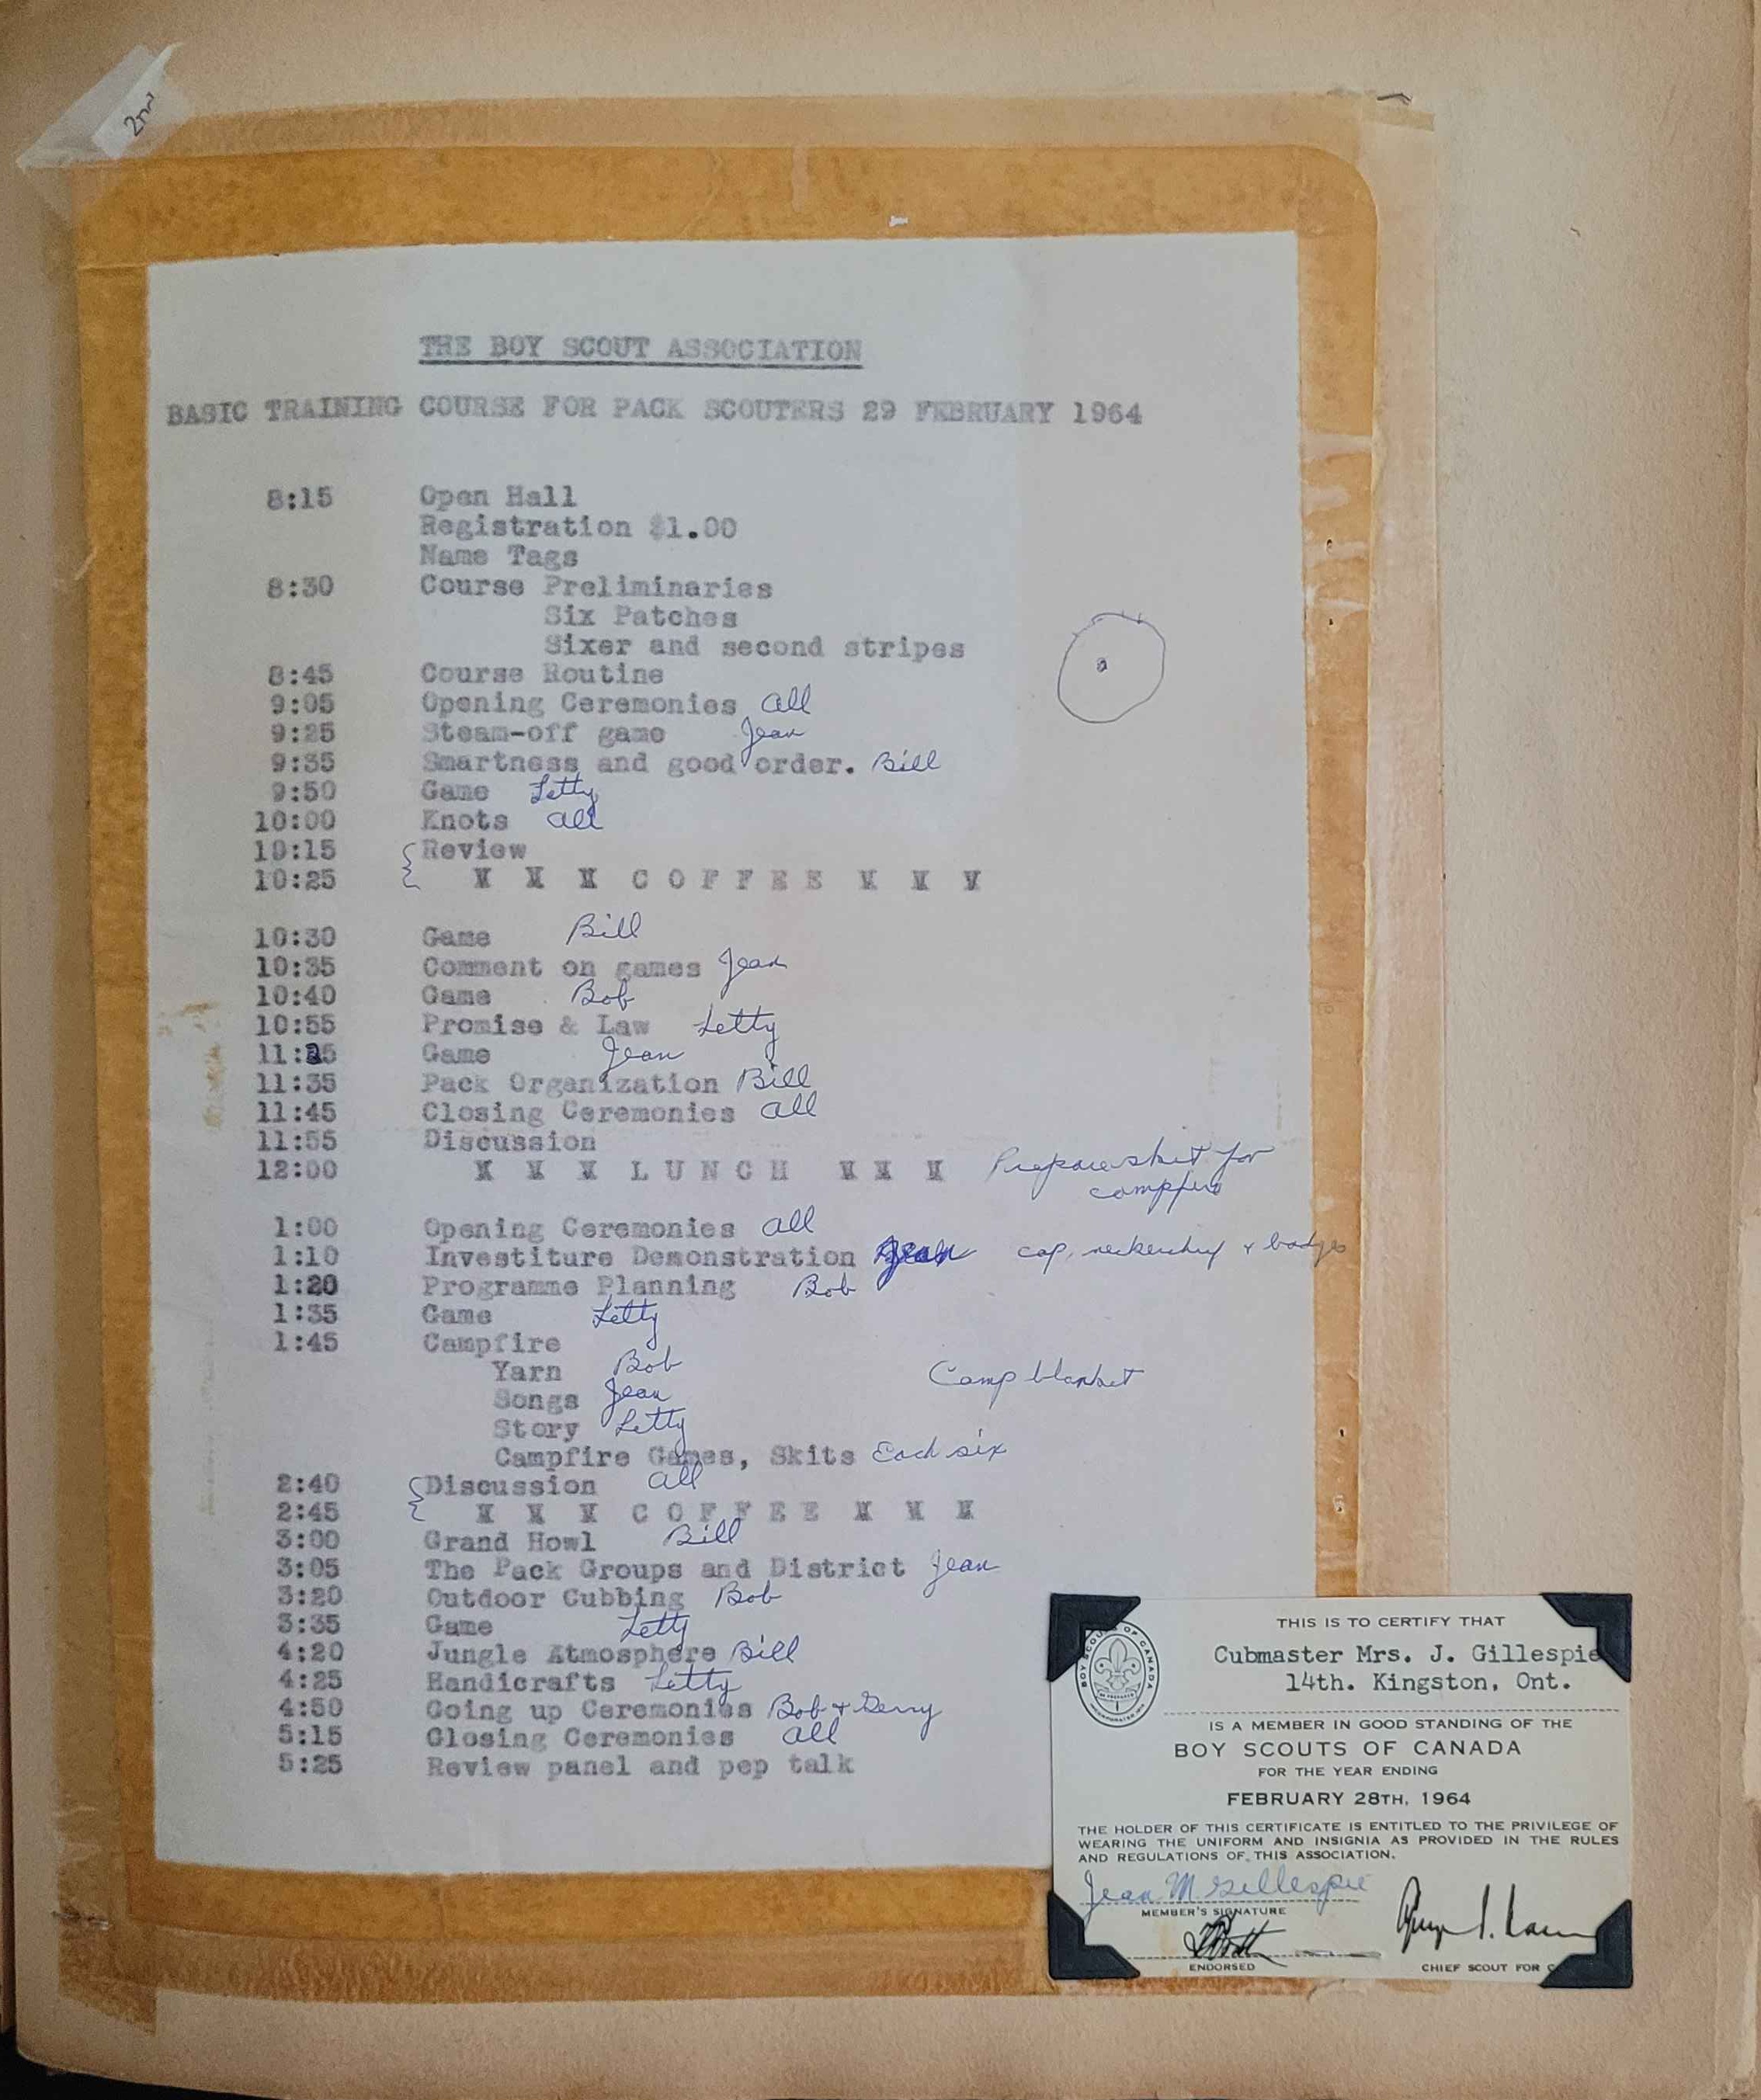 THE BOY SCOUT ASSOCIATION
BASIC TRAINING COURSE FOR PACK SCOUTERS 29 FEBRUARY 1964
8:15 Open Hall
Registration $1.00
Name Tags
8:30 Course Preliminaries
Six Patches
Sixer and second stripes
8:45 Course Routine
9:05 Opening Ceremonies all
9:25 Steam-off game Jean
9:35 Smartness and good order. Bill
9:50 Game Letty
10:00 Knots all
10:15 Review
10:25 X X X C O F F E E X X X
10:30 Game Bill
10:35 Comment on games Jean
10:40 Game Bob
10:55 Promise & Law Letty
11:25 Game Jean
11:35 Pack Organization Bill
11:45 Closing Ceremonies all
11:55 Discussion
12:00 X X X L U N C H X X X Prepare skit for
campfire
1:00 Opening Ceremonies all
1:10 Investiture Demonstration Jean cap, neckerchief + badges
1:20 Programme Planning Bob
1:35 Game Letty
1:45 Campfire
Yarn Bob
Songs Jean
Camp blanket
Story Letty
Campfire Games, Skits Each six
2:40 Discussion all
2:45 X X X C O F F E E X X X
3:00 Grand Howl Bill
3:05 The Pack Groups and District Jean
3:20 Outdoor Cubbing Bob
3:35 Game Letty
4:20 Jungle Atmosphere Bill
4:25 Handicrafts Letty
4:50 Going up Ceremonies Bob + Gerry
5:15 Closing Ceremonies all
5:25 Review panel and pep talk
BOY SCOUTS OF CANADA
THIS IS TO CERTIFY THAT
Cubmaster Mrs. J. Gillespie
14th. Kingston, Ont.
IS A MEMBER IN GOOD STANDING OF THE
BOY SCOUTS OF CANADA
FOR THE YEAR ENDING
FEBRUARY 28TH, 1964
THE HOLDER OF THIS CERTIFICATE IS ENTITLED TO THE PRIVILEGE OF
WEARING THE UNIFORM AND INSIGNIA AS PROVIDED IN THE RULES
AND REGULATIONS OF THIS ASSOCIATION.
Jean M. Gillespie
MEMBER'S SIGNATURE
ENDORSED
CHIEF SCOUT FOR C